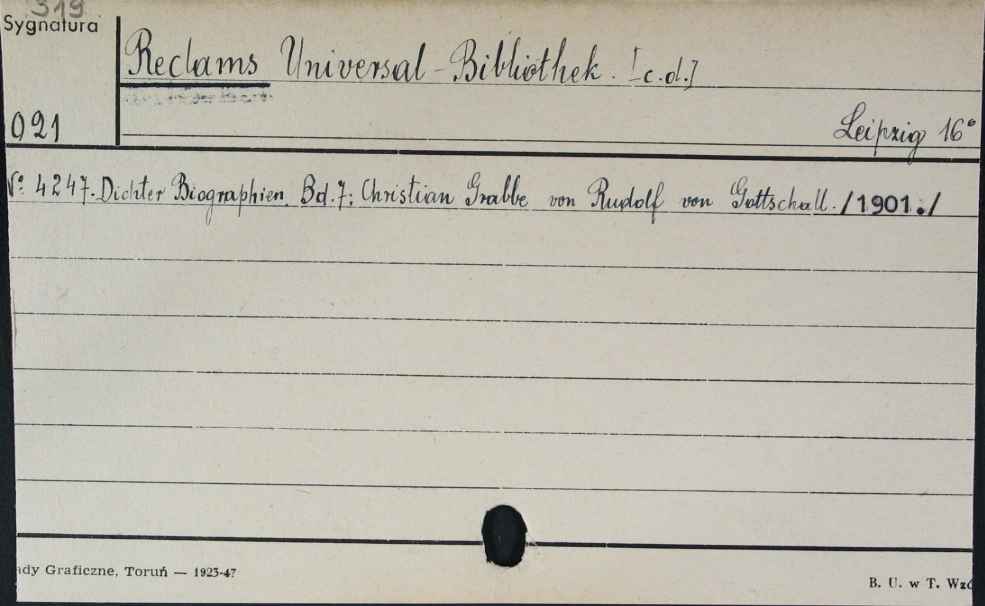 319
Sygnatura
Reclams Universal-Bibliothek. [c.d.]
021
Leipzig 16°
Nº 4247. Dichter Biographien. Bd. 7: Christian Grabbe von Rudolf von Gottschall. /1901./
ady Graficzne, Toruń — 1925-47
B. U. w T. Wzó